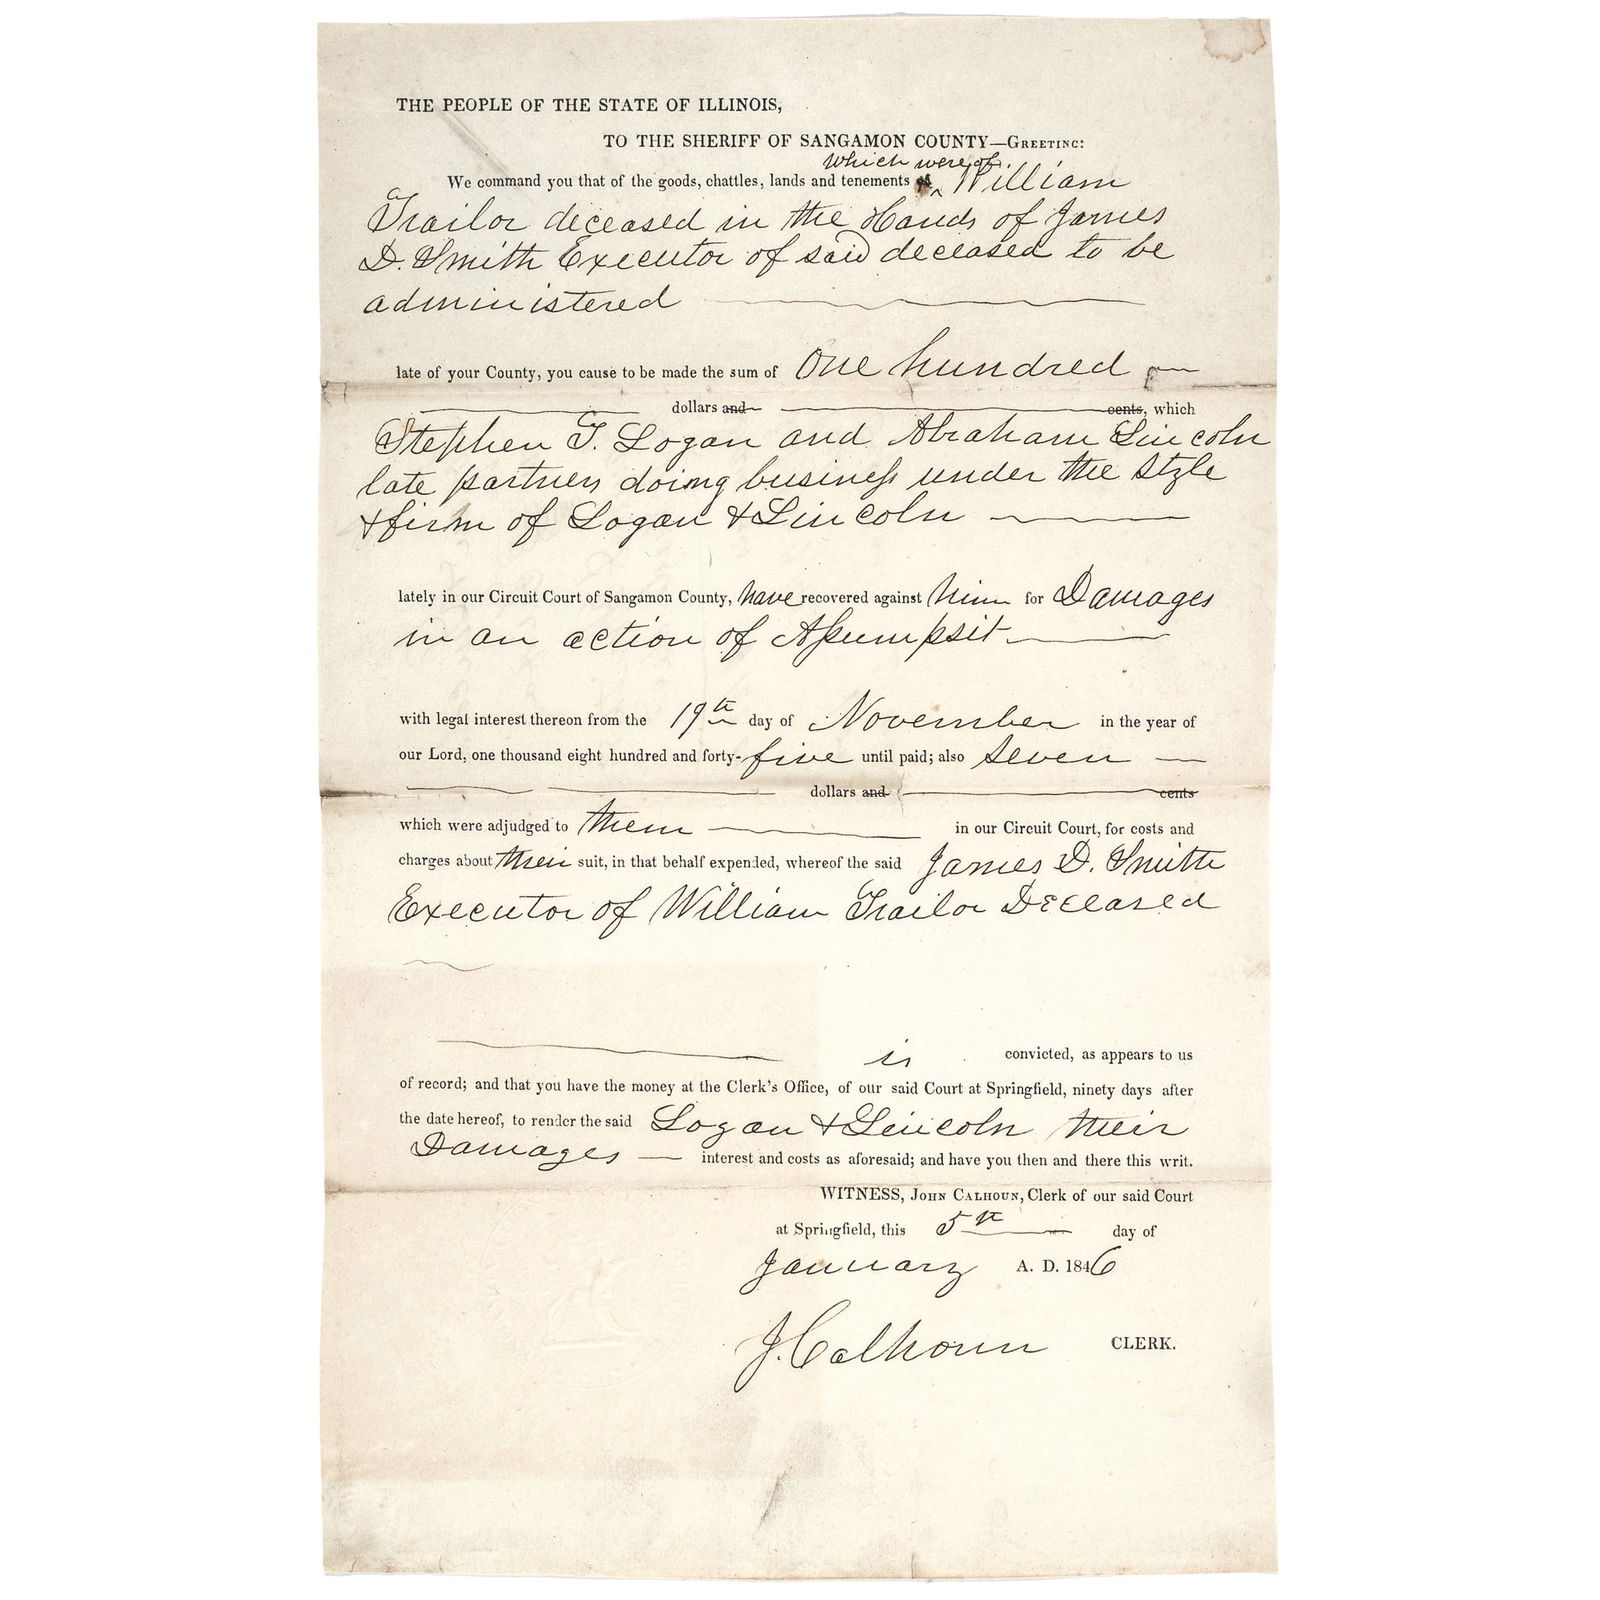 THE PEOPLE OF THE STATE OF ILLINOIS,
TO THE SHERIFF OF SANGAMON COUNTY—GREETING:
which were of
We command you that of the goods, chattles, lands and tenements of William
Trailor deceased in the Hands of James
D. Smith Executor of said deceased to be
administered
late of your County, you cause to be made the sum of One hundred
dollars and cents, which
Stephen T. Logan and Abraham Lincoln
late partners doing business under the style
& firm of Logan & Lincoln
lately in our Circuit Court of Sangamon County, have recovered against him for Damages
in an action of Assumpsit
with legal interest thereon from the 19th day of November in the year of
our Lord, one thousand eight hundred and forty-five until paid; also seven
dollars and cents
which were adjudged to them in our Circuit Court, for costs and
charges about their suit, in that behalf expended, whereof the said James D. Smith
Executor of William Trailor Deceased
is convicted, as appears to us
of record; and that you have the money at the Clerk's Office, of our said Court at Springfield, ninety days after
the date hereof, to render the said Logan & Lincoln their
Damages interest and costs as aforesaid; and have you then and there this writ.
WITNESS, JOHN CALHOUN, Clerk of our said Court
at Springfield, this 5th day of
January A. D. 1846
J. Calhoun CLERK.